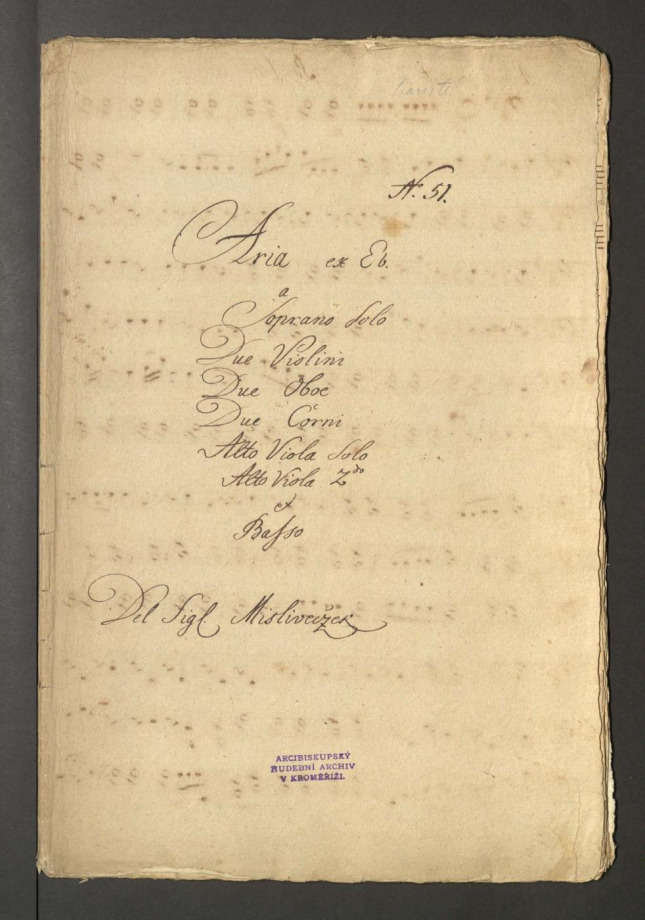 No. 51.
Aria ex Eb.
a
Soprano Solo
Due Violini
Due Oboe
Due Corni
Alto Viola Solo
Alto Viola 2do
et
Basso
Del Sigl. Misliveczek
ARCIBISKUPSKÝ
HUDEBNÍ ARCHIV
V KROMĚŘÍŽI.